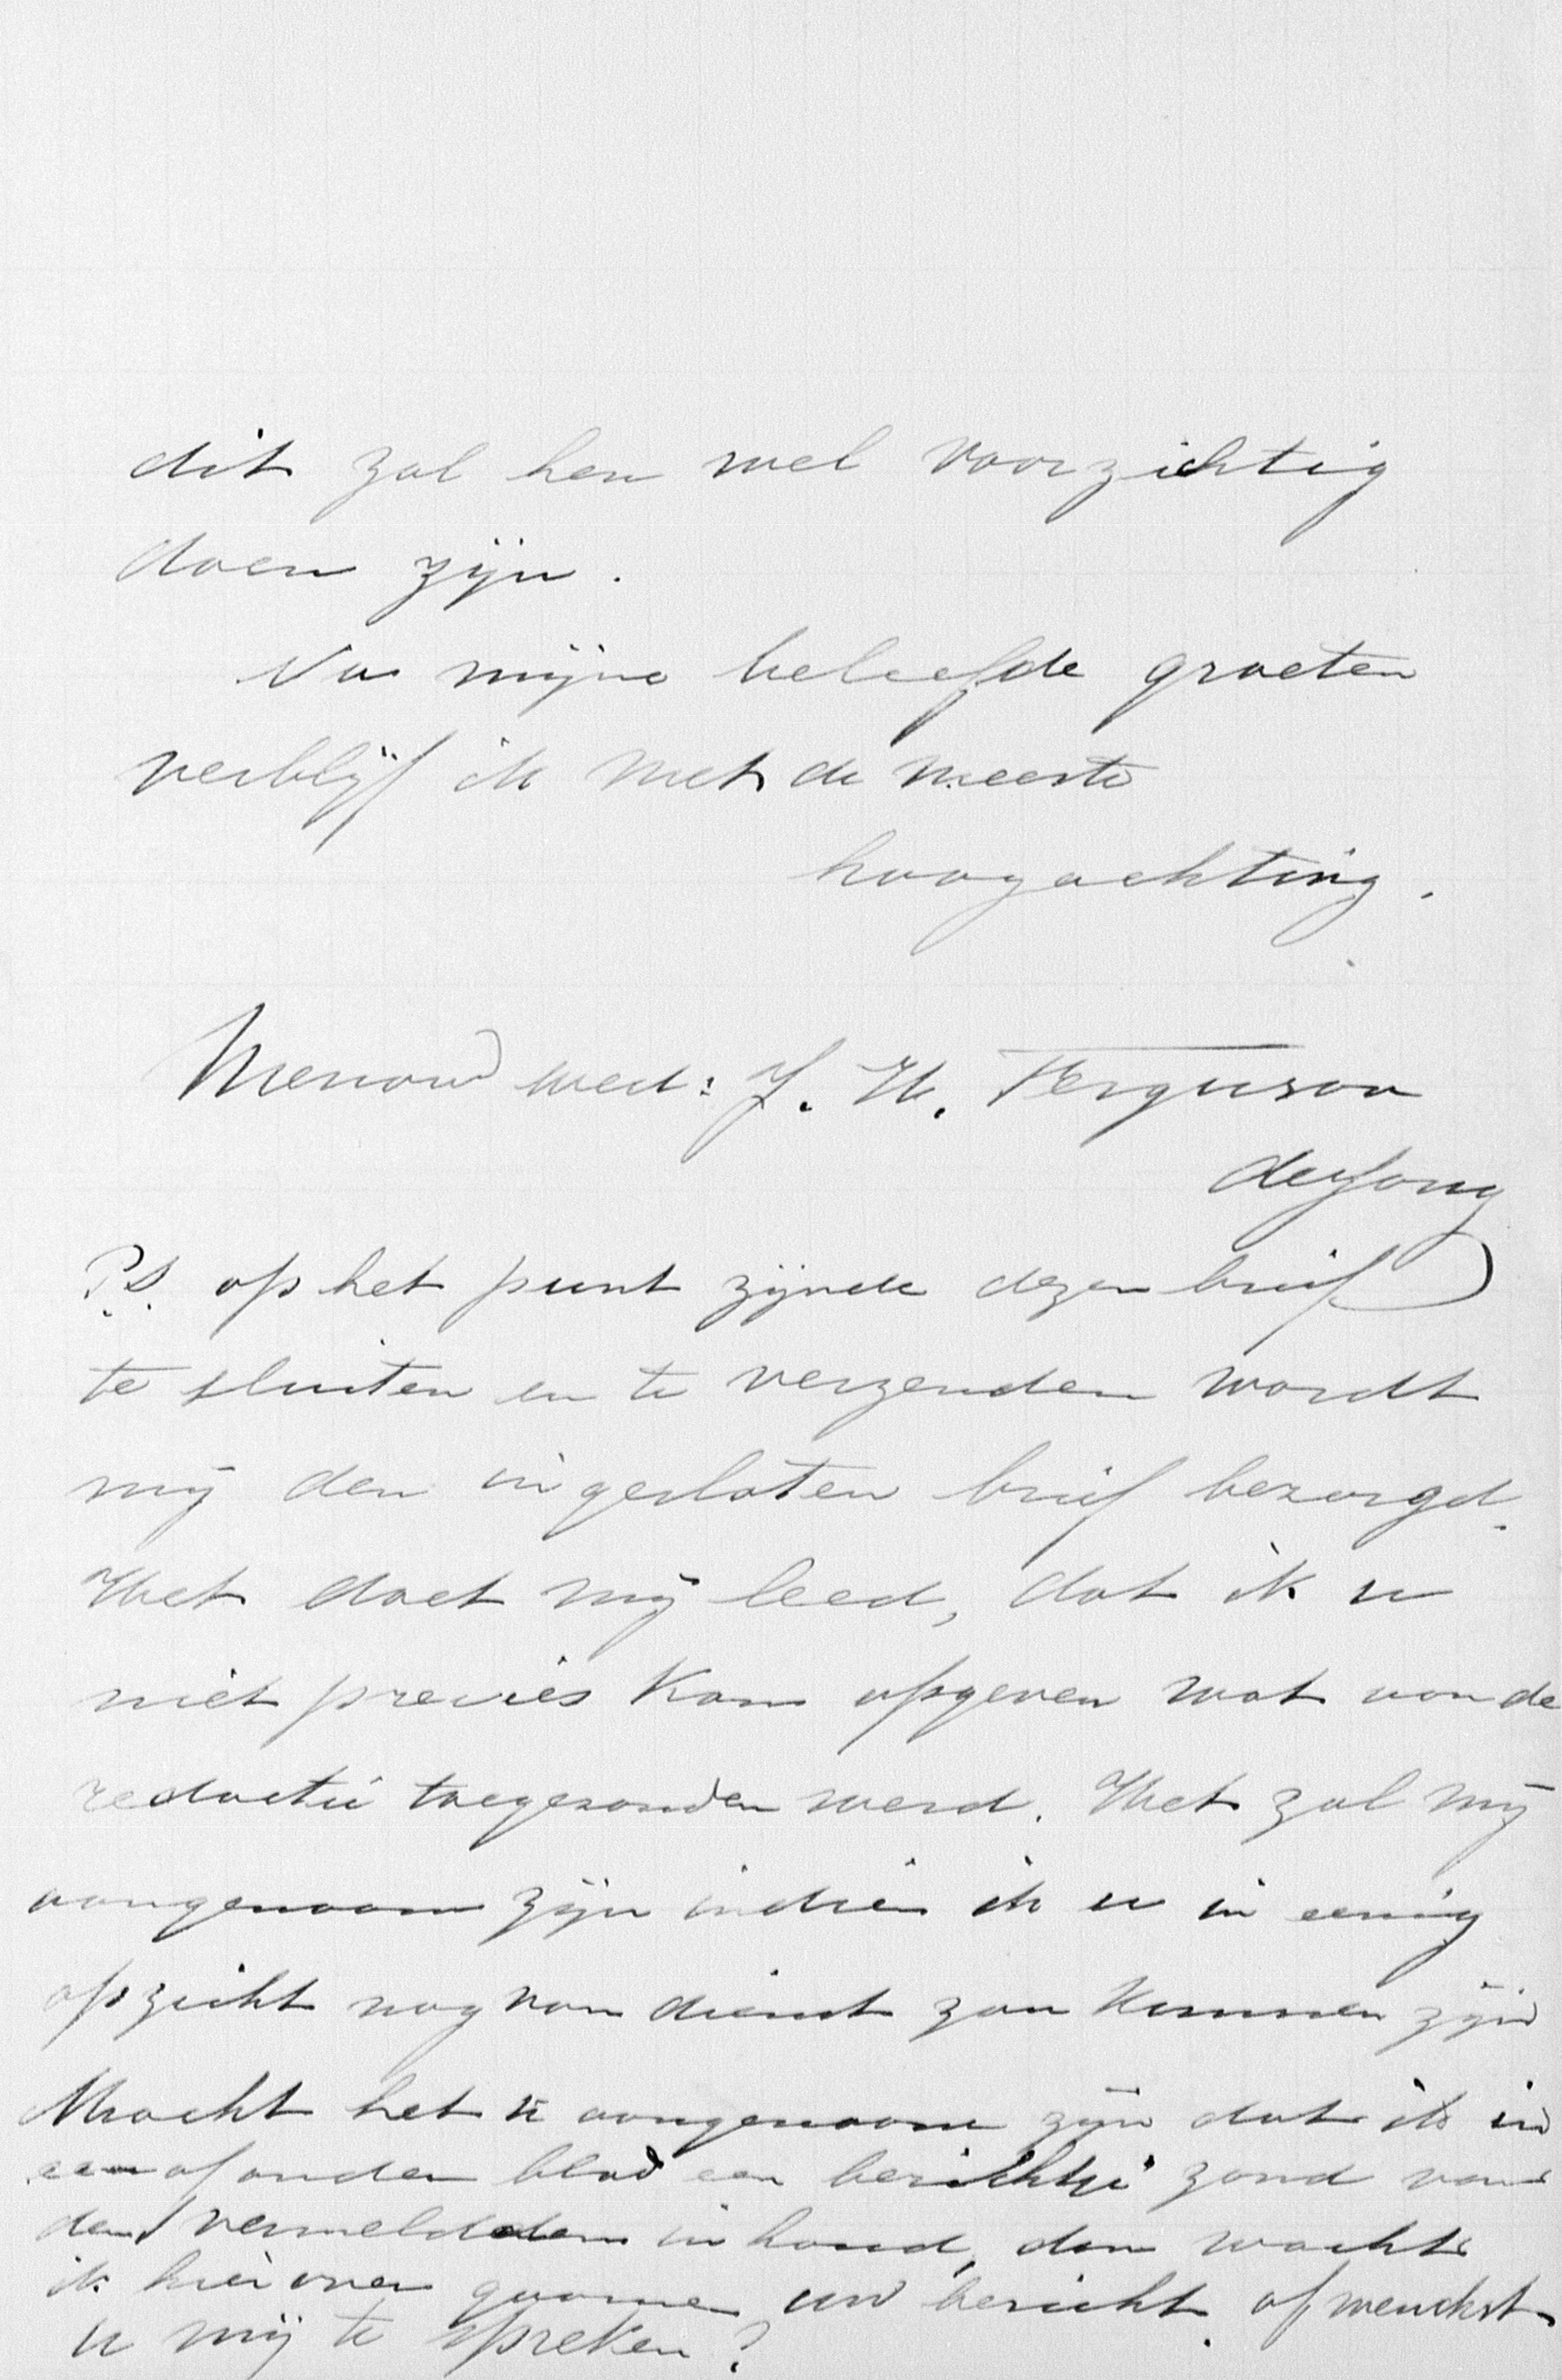 dit zal hen wel voorzichtig
doen zijn.
Na mijne beleefde groeten
verblijf ik met de meeste
hoogachting.
Mevrouw wed: J. H. Ferguson
de Jong
P.S. op het punt zijnde dezen brief
te sluiten en te verzenden wordt
mij den ingesloten brief bezorgd.
Het doet mij leed, dat ik u
niet precies kan opgeven wat van de
redactie toegezonden werd. Het zal mij
aangenaam zijn indien ik u in eenig
opzicht nog van dienst zou kunnen zijn
Mocht het u aangenaam zijn dat ik in
een of ander blad een berichtje zond van
den vermelden inhoud, dan wacht
ik hierover gaarne uw bericht. of wenscht
u mij te spreken?